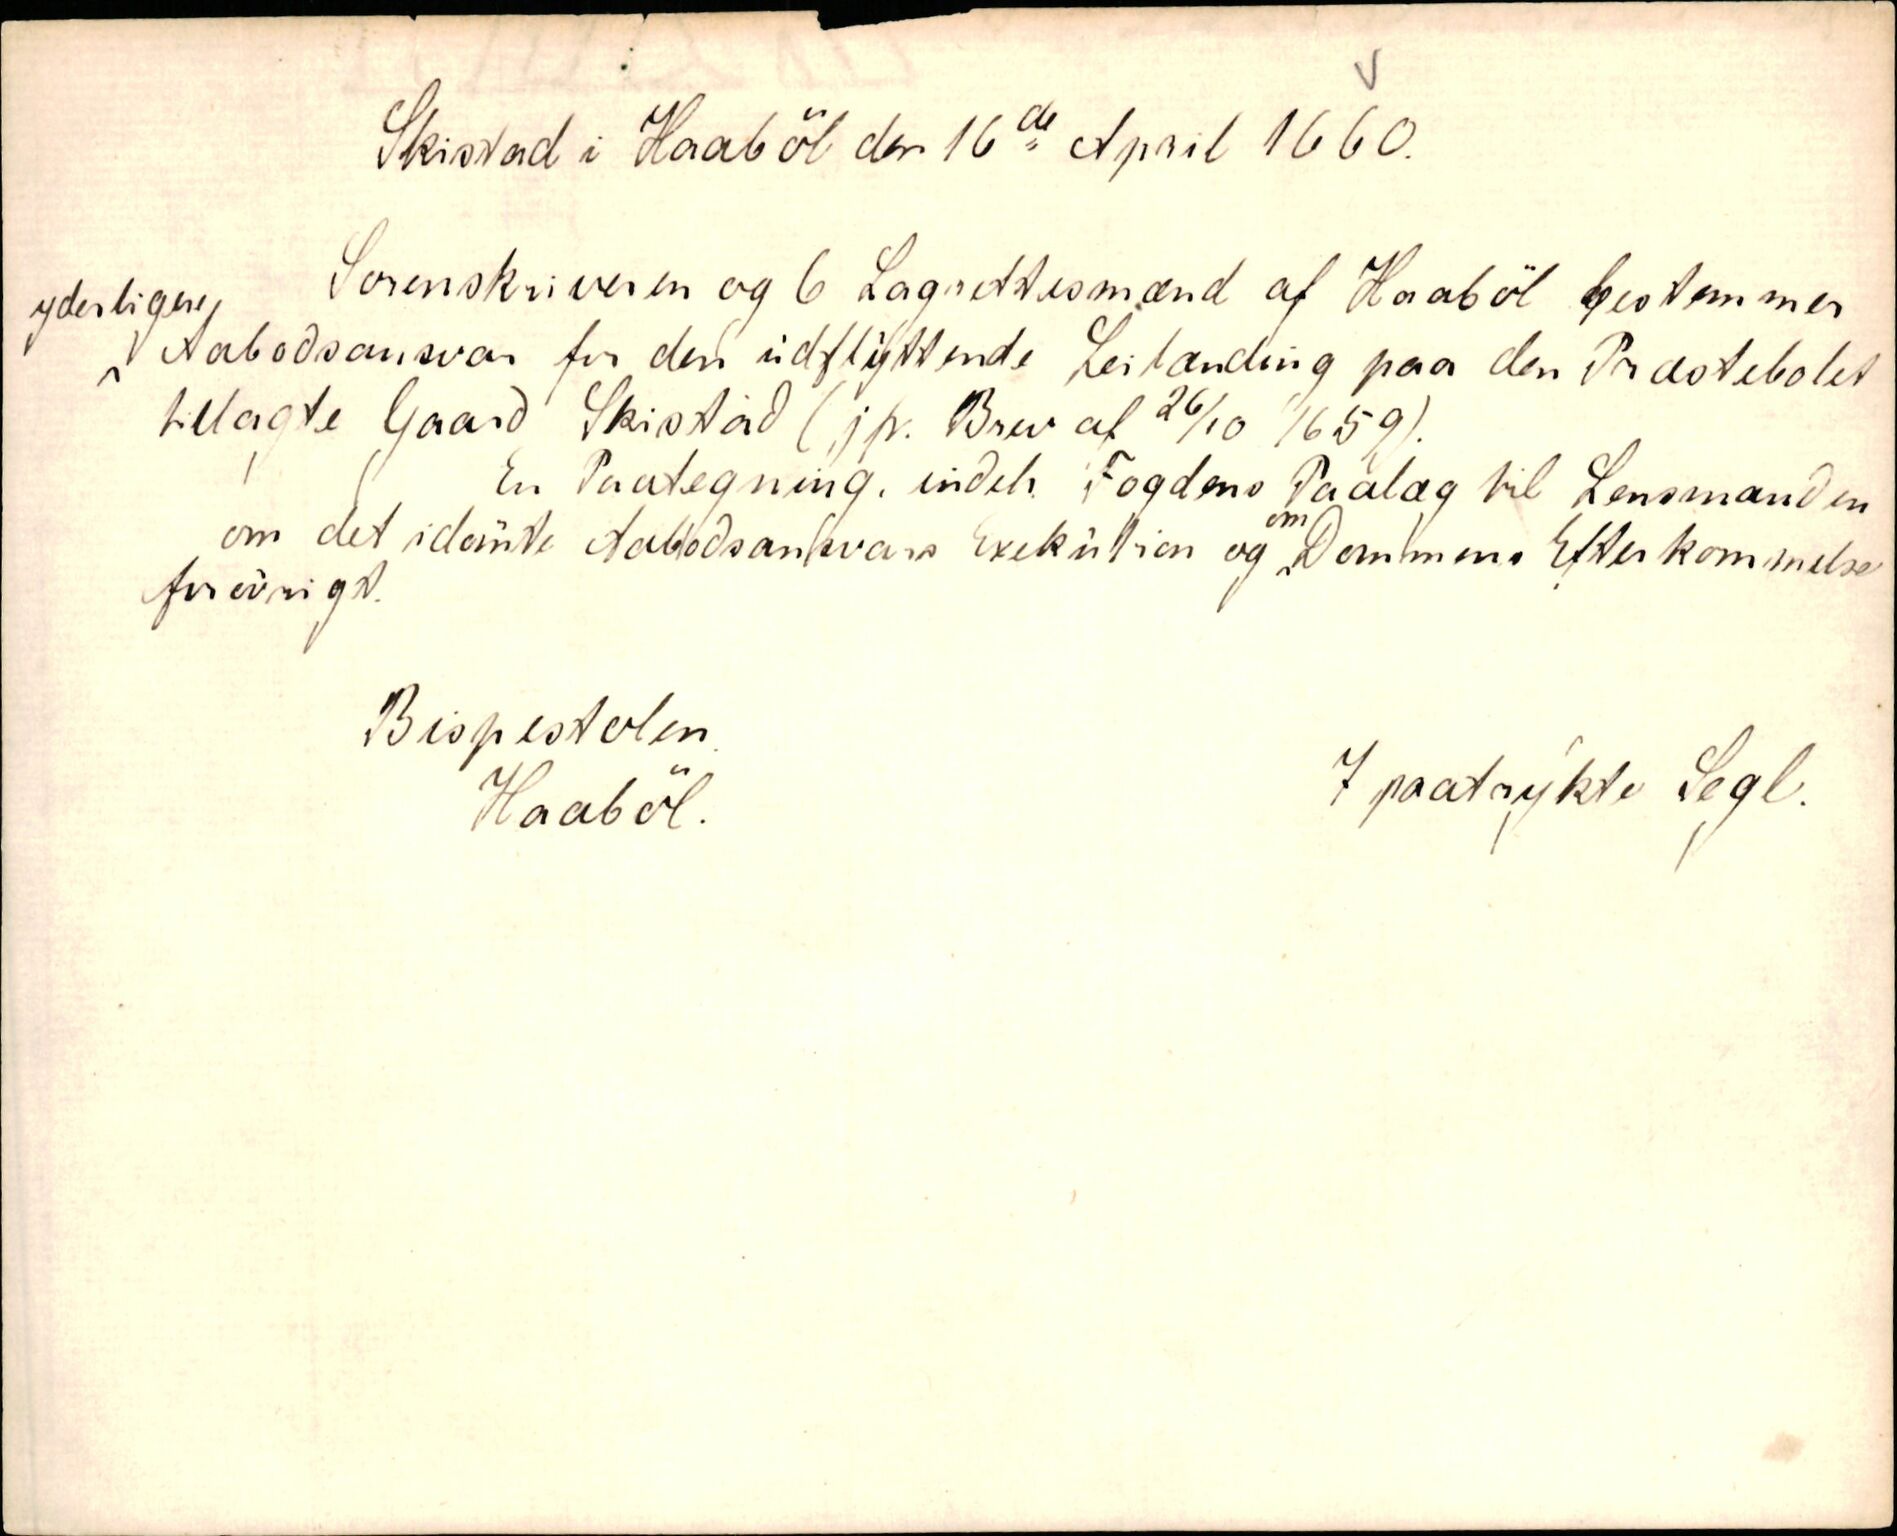 Skistad i Haaböl den 16de April 1660.
Sorenskriveren og 6 Lagrettesmænd af Haaböl bestemmer
yderligere Aabodsansvar for den udflyttende Leilænding paa den Præstebolet
tillagte Gaard Skistad (jfr. Brev af 26/10 1659).
En Paategning. indeh. Fogdens Paalæg til Lensmanden
om det idömte Aabodsansvars Exekution og om Dommens Efterkommelse
forövrigt.
Bispestolen.
Haaböl.
7 paatrykte Segl.